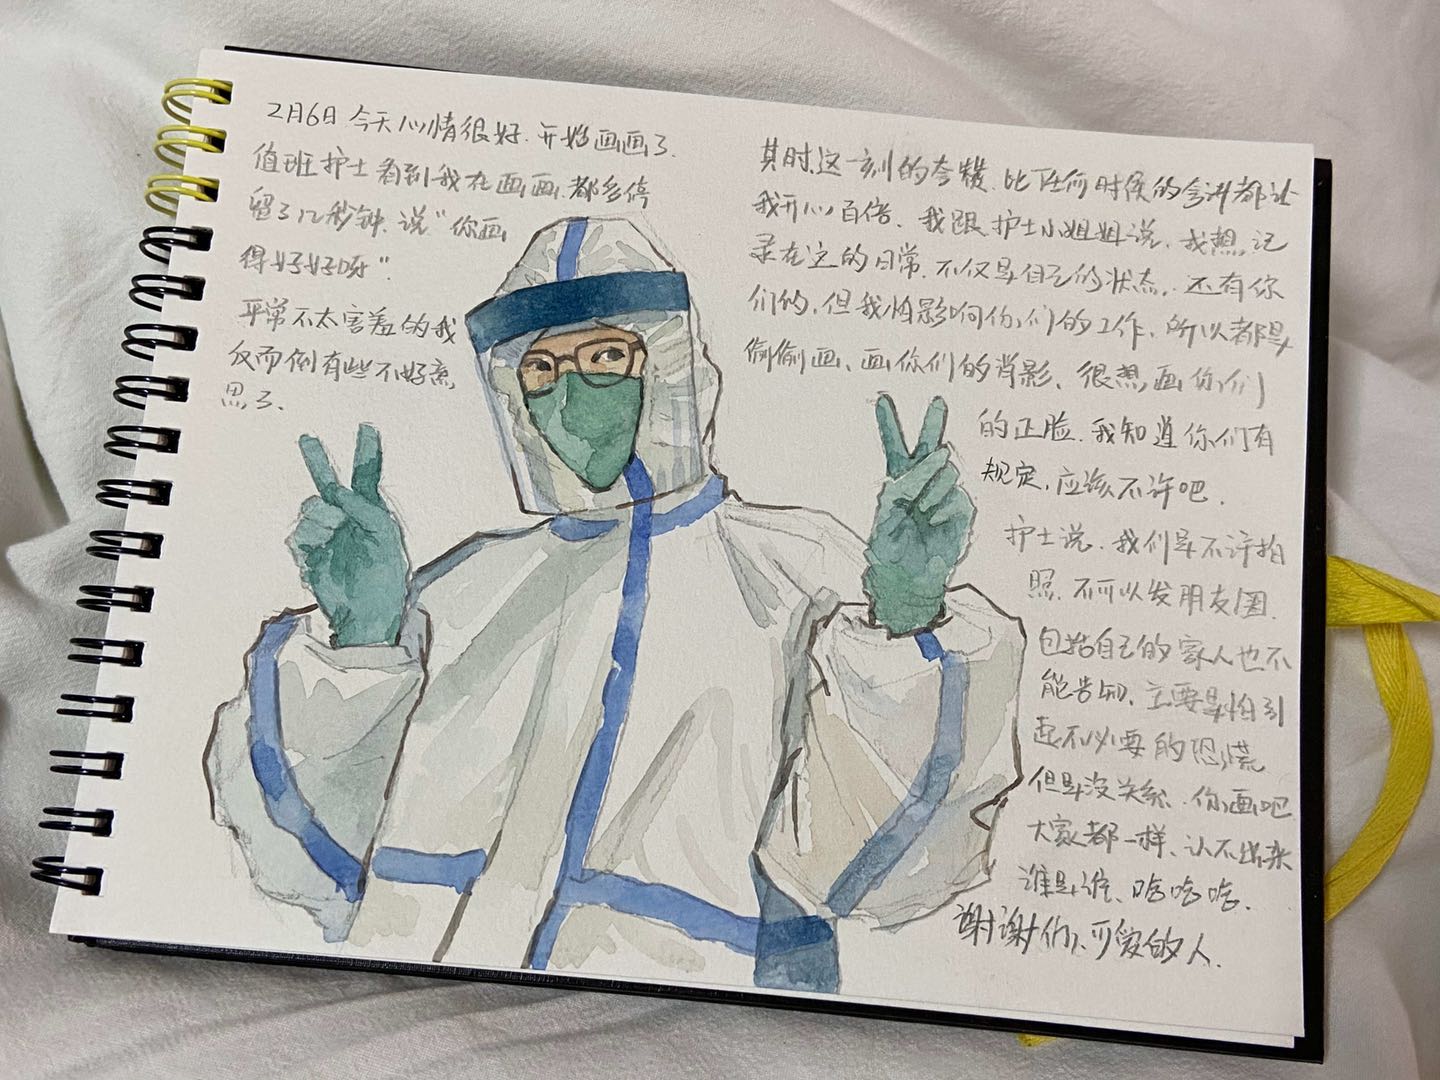 2月6日 今天心情很好.开始画画了.
值班护士看到我在画画.都多停
留了几秒钟.说“你画
得好好呀”.
平常不太害羞的我
反而倒有些不好意
思了.
其时这一刻的夸赞、比任何时候的夸讲都让
我开心百倍、我跟护士小姐姐说、我想记
录在这的日常.不仅是自己的状态、还有你
们的、但我怕影响你们的工作、所以都是
偷偷画、画你们的背影、很想画你们
的正脸、我知道你们有
规定、应该不许吧.
护士说、我们是不许拍
照.不可以发朋友圈
包括自己的家人也不
能告知、主要是怕引
起不必要的恐慌
但是没关系、你画吧
大家都一样、认不出来
谁是谁、哈哈哈.
谢谢你们、可爱的人.